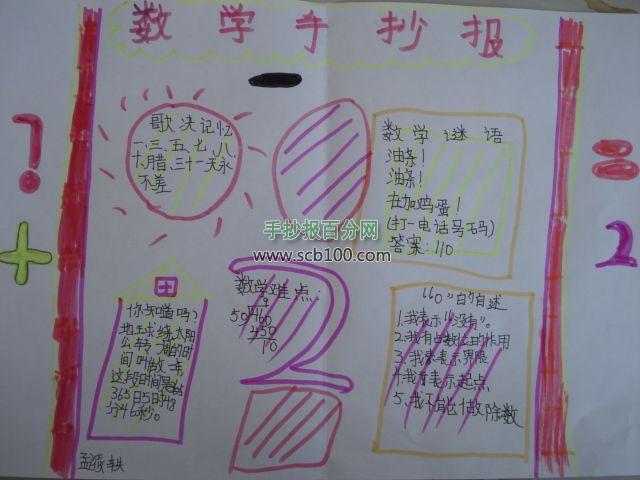 数学手抄报
歌决记忆
一、三、五、七、八、
十、月腊、三十一天永
不差
数学谜语
油条!
油条!
在加鸡蛋!
(打一电话号码)
答案:110
?
+
=
2
手抄报百分网
www.scb100.com
你知道吗?
地球绕太阳
公转一周的时
间叫做一年,
这段时间是
365日5时48
分46秒。
数学难点:
9
50√460
450
10
2
"0"的自述
1.我表示"没有"。
2.我有占数位的作用
3.我表示界限
4.我表示起点
5.我不能做除数